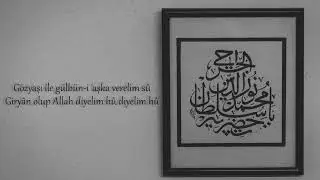 Gözyaşı ile gülbün-i 'aşka verelim sû
Giryân olup Allah diyelim hû diyelim hû
يا حضرت پير سلطان محمد نور الدين جراحي